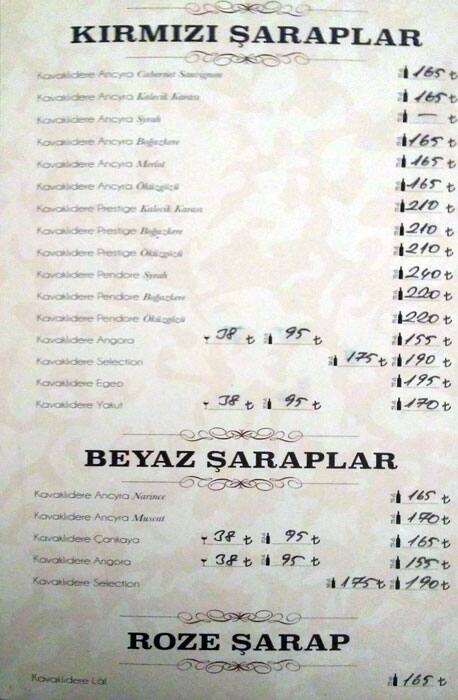 KIRMIZI ŞARAPLAR
Kavaklıdere Ancyra Cabernet Sauvignon 165 ₺
Kavaklıdere Ancyra Kalecik Karası 165 ₺
Kavaklıdere Ancyra Syrah — ₺
Kavaklıdere Ancyra Boğazkere 165 ₺
Kavaklıdere Ancyra Merlot 165 ₺
Kavaklıdere Ancyra Öküzgözü 165 ₺
Kavaklıdere Prestige Kalecik Karası 210 ₺
Kavaklıdere Prestige Boğazkere 210 ₺
Kavaklıdere Prestige Öküzgözü 210 ₺
Kavaklıdere Pendore Syrah 240 ₺
Kavaklıdere Pendore Boğazkere 220 ₺
Kavaklıdere Pendore Öküzgözü 220 ₺
Kavaklıdere Angora 38 ₺ 95 ₺ 155 ₺
Kavaklıdere Selection 175 ₺ 190 ₺
Kavaklıdere Egeo 195 ₺
Kavaklıdere Yakut 38 ₺ 95 ₺ 170 ₺
BEYAZ ŞARAPLAR
Kavaklıdere Ancyra Narince 165 ₺
Kavaklıdere Ancyra Muscat 170 ₺
Kavaklıdere Çankaya 38 ₺ 95 ₺ 165 ₺
Kavaklıdere Angora 38 ₺ 95 ₺ 155 ₺
Kavaklıdere Selection 175 ₺ 190 ₺
ROZE ŞARAP
Kavaklıdere Lâl 165 ₺